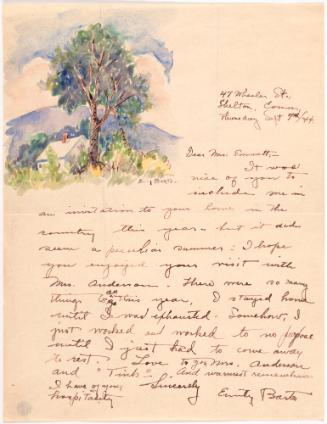 47 Wheeler St.,
Shelton, Conn.,
Thursday Sept 7th/44
Dear Mrs. Emmett:-
It was
nice of you to
include me in
an invitation to your home in the
country this year - but it did
seem a peculiar summer: I hope
you enjoyed your visit with
Mrs. Anderson. There were so many
things this year, I stayed home
until I was exhausted. Somehow, I
just worked and worked to no purpose
until I just had to come away
to rest. Love to you Mrs. Anderson
and "Tink" - And warmest remembrances
I have of your
hospitality
Sincerely
Emily Barto